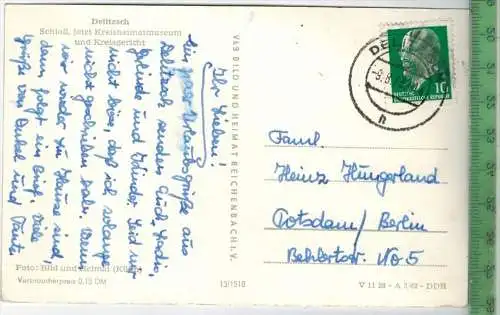 Delitzsch
Schloß, jetzt Kreisheimatmuseum
und Kreisgericht
Ihr Lieben!
Ein paar Urlaubsgrüße aus
Delitzsch senden Euch Gerdis,
Gerlinde und Günter. Seid nur
nicht böse, daß ich solange
nicht geschrieben habe. Wenn
wir wieder zu Hause sind,
dann folgt ein Brief. Viele
Grüße von Onkel und Tante
Foto: Bild und Heimat
Verbraucherpreis 0,15 DM
VEB BILD UND HEIMAT REICHENBACH I. V.
13/1518
DEL
10
DEUTSCHE
DEMOKRATISCHE REPUBLIK
h
Famil.
Heinz Hungerland
Potsdam / Berlin
Behlertstr. No 5
V 11 28 - A 1/62 - DDR